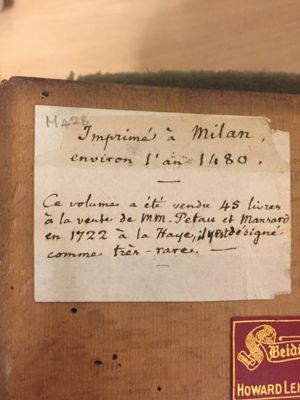 M428
Imprimé à Milan,
environ l'an 1480.
Ce volume a été vendu 45 livres
à la vente de MM. Petau et Mansard
en 1722 à la Haye, il y est désigné
comme très-rare. —
HOWARD